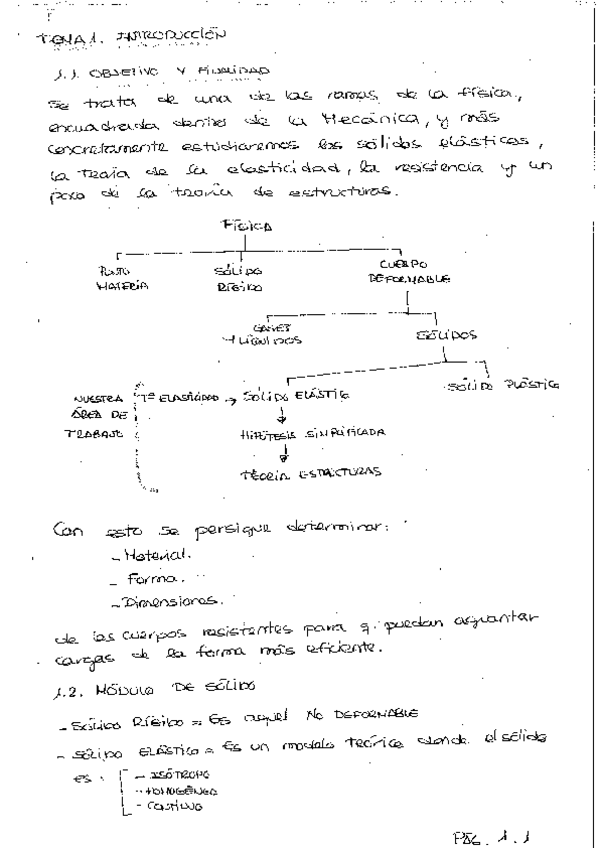 TEMA 1. INTRODUCCIÓN
1.1. OBJETIVO Y FINALIDAD
Se trata de una de las ramas de la física,
encuadrada dentro de la Mecánica, y más
concretamente estudiaremos los sólidos elásticos,
la Teoría de la elasticidad, la resistencia y un
poco de la teoría de estructuras.
FÍSICA
PUNTO MATERIA
SÓLIDO RÍGIDO
CUERPO DEFORMABLE
GASES Y LÍQUIDOS
SÓLIDOS
SÓLIDO PLÁSTICO
NUESTRA ÁREA DE TRABAJO
Tª ELASTICIDAD → SÓLIDO ELÁSTICO
HIPÓTESIS SIMPLIFICADA
TEORÍA ESTRUCTURAS
Con esto se persigue determinar:
- Material.
- Forma.
- Dimensiones.
de los cuerpos resistentes para q. puedan aguantar
cargas de la forma más eficiente.
1.2. MÓDULO DE SÓLIDO
- SÓLIDO RÍGIDO = Es aquel NO DEFORMABLE
- SÓLIDO ELÁSTICO = Es un modelo teórico donde el sólido
es:
- ISÓTROPO
- HOMOGÉNEO
- CONTINUO
PÁG. 1.1